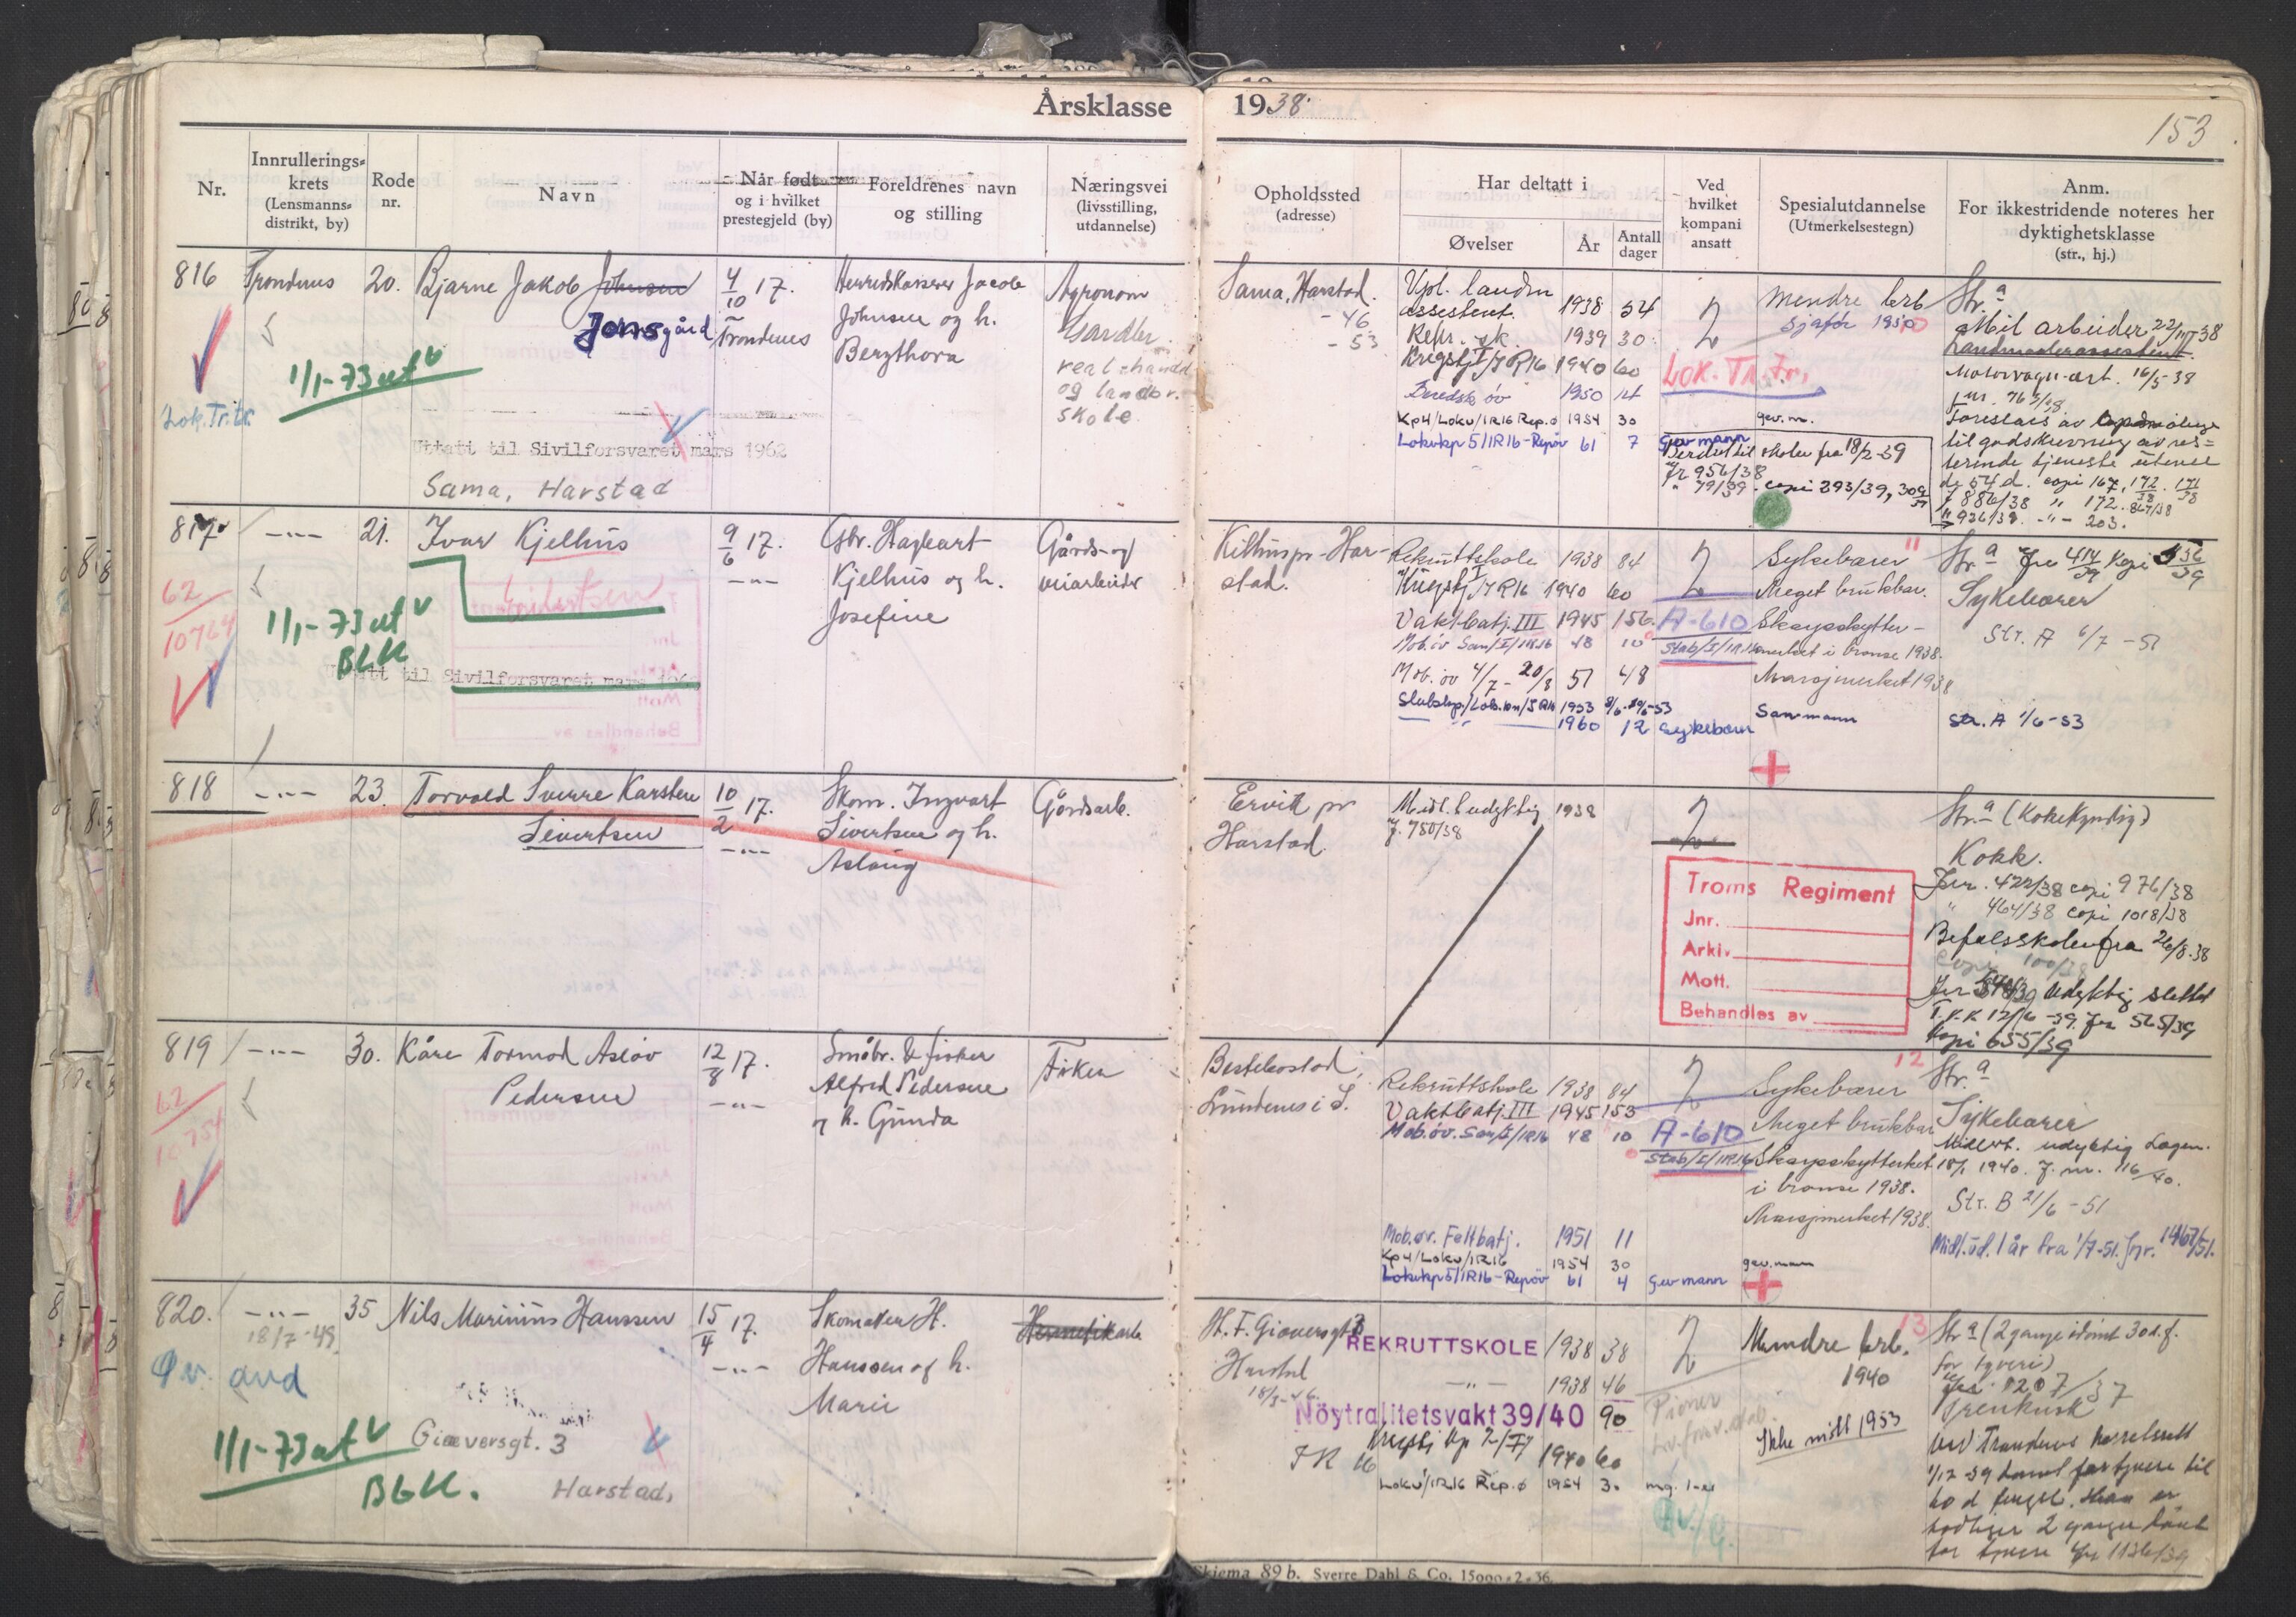 Årsklasse 1938.
153
Nr.
Innrullerings-
krets
(Lensmanns-
distrikt, by)
Rode
nr.
Navn
Når født
og i hvilket
prestegjeld (by)
Foreldrenes navn
og stilling
Næringsvei
(livsstilling,
utdannelse)
Opholdssted
(adresse)
Har deltatt i
Øvelser
År
Antall
dager
Ved
hvilket
kompani
ansatt
Spesialutdannelse
(Utmerkelsestegn)
Anm.
For ikkestridende noteres her
dyktighetsklasse
(str., hj.)
816 Trondenes 20. Bjarne Jakob Johnsen
Jonsgård
4/10 17.
Trondenes
Herredskasserer Jacob
Johnsen og h.
Bergthora
Agronom
Gardbr.
real-handd
og landbr.
skole
1/1-73 ut
Lok.Tr.tr.
Uttatt til Sivilforsvaret mars 1962
Sama, Harstad
Sama, Harstad.
-46
-53
Vpl. landm
assistent. 1938 54
Repr. sk. 1939 30
Krigstj I/IR16 1940 60
Beredsk öv 1950 14
Kp4/Lokv/IR16 Rep.ø 1954 30
Lokvkp5/IR16-Repöv 61 7 Gev mann
2
Lok. Tr. tr.
Mindre brb
Sjafør 1950
gev.m.
Beordret til skolen fra 18/2-39
Jr 956/38
" 79/39. copi 293/39, 309/39
Str. a
Mil arbeider 22/III 38
Landmaalerassistent
Motorvogn-art. 16/5-38
Jnr. 762/38
Foreslaes av
til godskrivning av res-
terende tjeneste utenom
de 54 d. copi 167, 172/38. 171/38
J 886/38 " 172. 867/38
" 926/38. -"- 203.
817 -"- 21. Ivar Kjelhus
9/6 17.
-"-
Gbr. Hagbart
Kjelhus og h.
Josefine
Gårds-og
veiarbeider
62/10764
1/1-73 ut
BLK
Uttatt til Sivilforsvaret mars 1962
Kilhus pr. Har-
stad.
Rekruttskole 1938 84
Krigstj I/IR16 1940 60
Vaktbatj. III 1945 156
Mob.öv San/I/IR16 48 10
Mob.öv 4/7 - 20/8 51 48
Stabskp./Lok.bn/IR16 1953 1/6-30/6-53
-"- 1960 12 Sykebærer
2
A-610
Stab/I/IR16
Sykebærer 11
Meget brukbar.
Skarpskytter-
merket i bronse 1938.
Marsjmerket 1938
San.mann
Str. a Jnr 414/39 Kopi 536/39
Sykebærer
Str. A 6/7 -51
Str. A 1/6-53
818 -"- 23. Torvald Sverre Karsten
Sivertsen
10/2 17.
-"-
Skom. Ingvart
Sivertsen og h.
Aslaug
Gårdsarb.
Ervik pr
Harstad.
Midl. udyktig 1938
J. 780/38
2
Troms Regiment
Jnr.
Arkiv.
Mott.
Behandles av
Str. a (Kokekyndig)
Kokk.
Jnr. 422/38 copi 976/38
" 464/38 copi 1018/38
Befalsskolen fra 26/8-38
Copi 100/38
Udyktig slettet
T.K.K 12/6 -39. Jnr 565/39
Kopi 655/39
819 -"- 30. Kåre Tormod Asløv
Pedersen
12/8 17.
-"-
Småbr. & fisker
Alfred Pedersen
og h. Gunda
Fisker
62/10754
Bestebostad,
Trondenes i S.
Rekruttskole 1938 84
Vaktbatj. III 1945 153
Mob.öv. San/I/IR16 48 10
Mob.øv. Feltbatj. 1951 11
Kp4/Lokv/IR16 1954 30
Lokvkp5/IR16-Repöv 61 4 Gev mann
2
A-610
Stab/I/IR16
Sykebærer 12
Meget brukbar
Skarpskyttermerket
i bronse 1938.
Marsjmerket 1938.
gev.mann
Str. a
Sykebærer
Midlert. udyktig Lagen.
18/1 1940. J. nr. 116/40.
Str. B 21/6 -51
Midl. ud. 1 år fra 1/7-51. Jnr. 1467/51.
820. -"- 35 Nils Marinius Hanssen
18/7-49
15/4 17.
-"-
Skomaker H.
Hanssen og h.
Marie
Hermetikarb
Øv. avd
1/1-73 ut
BLK.
Giæversgt. 3
Harstad,
H. F. Giæversgt 3
Harstad
18/3-46.
REKRUTTSKOLE 1938 38
-"- 1938 46
Nöytralitetsvakt 39/40 90
Krigstj Kp 2/I/
IR 16 1940 60
Lokv/IR16 Rep.ø 1954 30 mg. 1-er
2
Pioner
Mindre brb. 13
1940
Ikke møtt 1953
Str. a (2 ganger idømt 30 d. f.
for tyveri)
Jnr. 1207/37
Frenkusk
Ved Trondenes herredsrett
1/12 39 dømt for tyveri til
60 d fengsel. Han er
tidligere 2 ganger dømt
for tyveri Jnr 1136/39
Skjema 89 b. Sverre Dahl & Co. 15000-2-36.